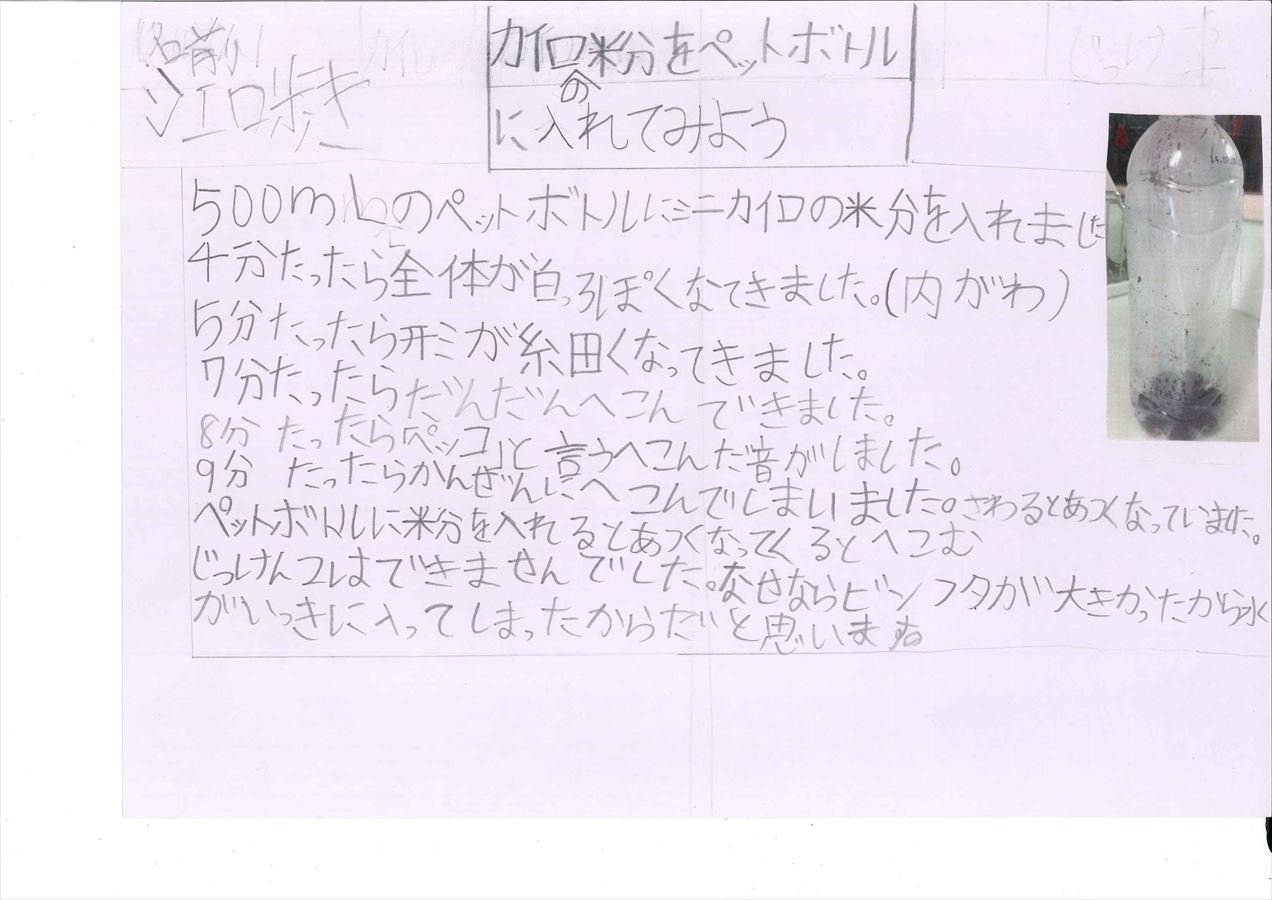 (名前)
シエロ歩き
カイロの粉をペットボトル
に入れてみよう
じっけん
500mLのペットボトルにミニカイロの粉を入れました
4分たったら全体が白っぽくなてきました。(内がわ)
5分たったら形が細くなってきました。
7分たったらだんだんへこんできました。
8分たったら「ペッコ」と言うへこんだ音がしました。
9分 たったらかんぜんにへこんでしまいました。さわるとあつくなっていました。
ペットボトルに粉を入れるとあつくなってくるとへこむ
じっけんコレはできませんでした。なせならビンフタが大きかったから水
がいっきに入ってしまったからだと思いますね